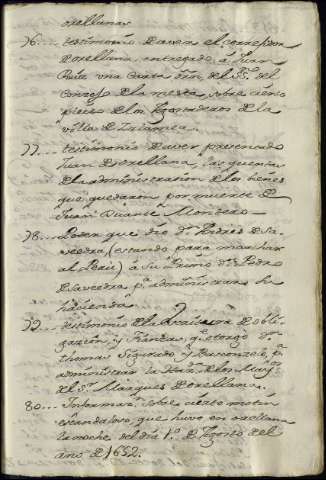 orellanas
76. testimonio de aver el corregidor
de orellana, entregado á Juan
Ruiz una Carta orn. del Sr. del
Conzejo de la mesta, sobre cierto
pleito de los Ganaderos de la
villa de Zalamea.
77. testimonio de aver presentado
Juan de orellana, las quentas
de la administrazion de los bienes
que quedaron por muerte de
Juan Duante Mondero
78. Poder que dio Dn. Andres de Sa-
avedra, (estando para marchar
al Perú) á Su Primo Dn. Pedro
de Saavedra pa. administrar su
hazienda
79. testimonio de la escritura de oblig-
gazion, y Fianzas, q. otorgó Dn.
thomas Sigurado y pa.
administrar la Hazda. de los Mayos.
del Sr. Marques de orellana.
80. Informazn. sobre cierto motin
escandaloso que huvo en orellana
la noche del dia 1o. de Agosto del
año de 1652.